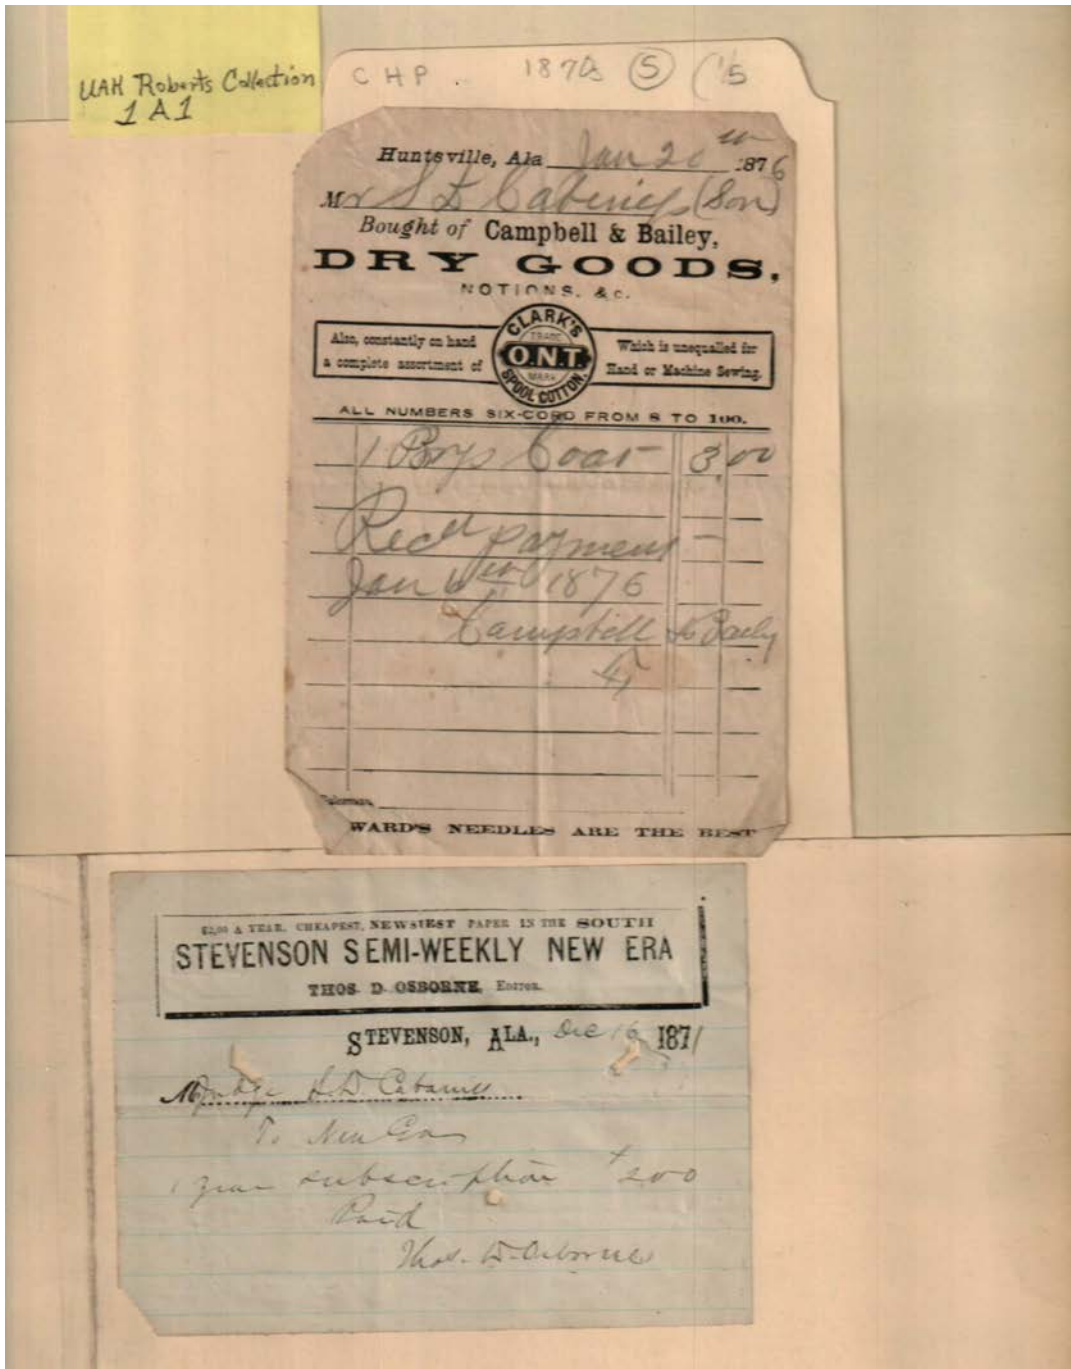 UAH Roberts Collection
1A1
CHP. 1870s 5 ('5
Huntsville, Ala Jan 20th 1876
Mr S D Cabiness (Son)
Bought of Campbell & Bailey,
DRY GOODS,
NOTIONS, &c.
Also, constantly on hand
a complete assortment of
CLARK'S
TRADE
O.N.T.
MARK
SPOOL COTTON.
Which is unequalled for
Hand or Machine Sewing.
ALL NUMBERS SIX-CORD FROM 8 TO 100.
1 Boys Coat 3.00
Recd payment
Jan 1876
Campbell & Baily
WARD'S NEEDLES ARE THE BEST
$2,00 A YEAR. CHEAPEST, NEWSIEST PAPER IN THE SOUTH
STEVENSON SEMI-WEEKLY NEW ERA
THOS. D. OSBORNE, EDITOR.
STEVENSON, ALA., Dec 16 1871
Mr Judge S.D. Cabaniss
To New Era
1 year subscription $200
Paid
Thos. D. Osborne